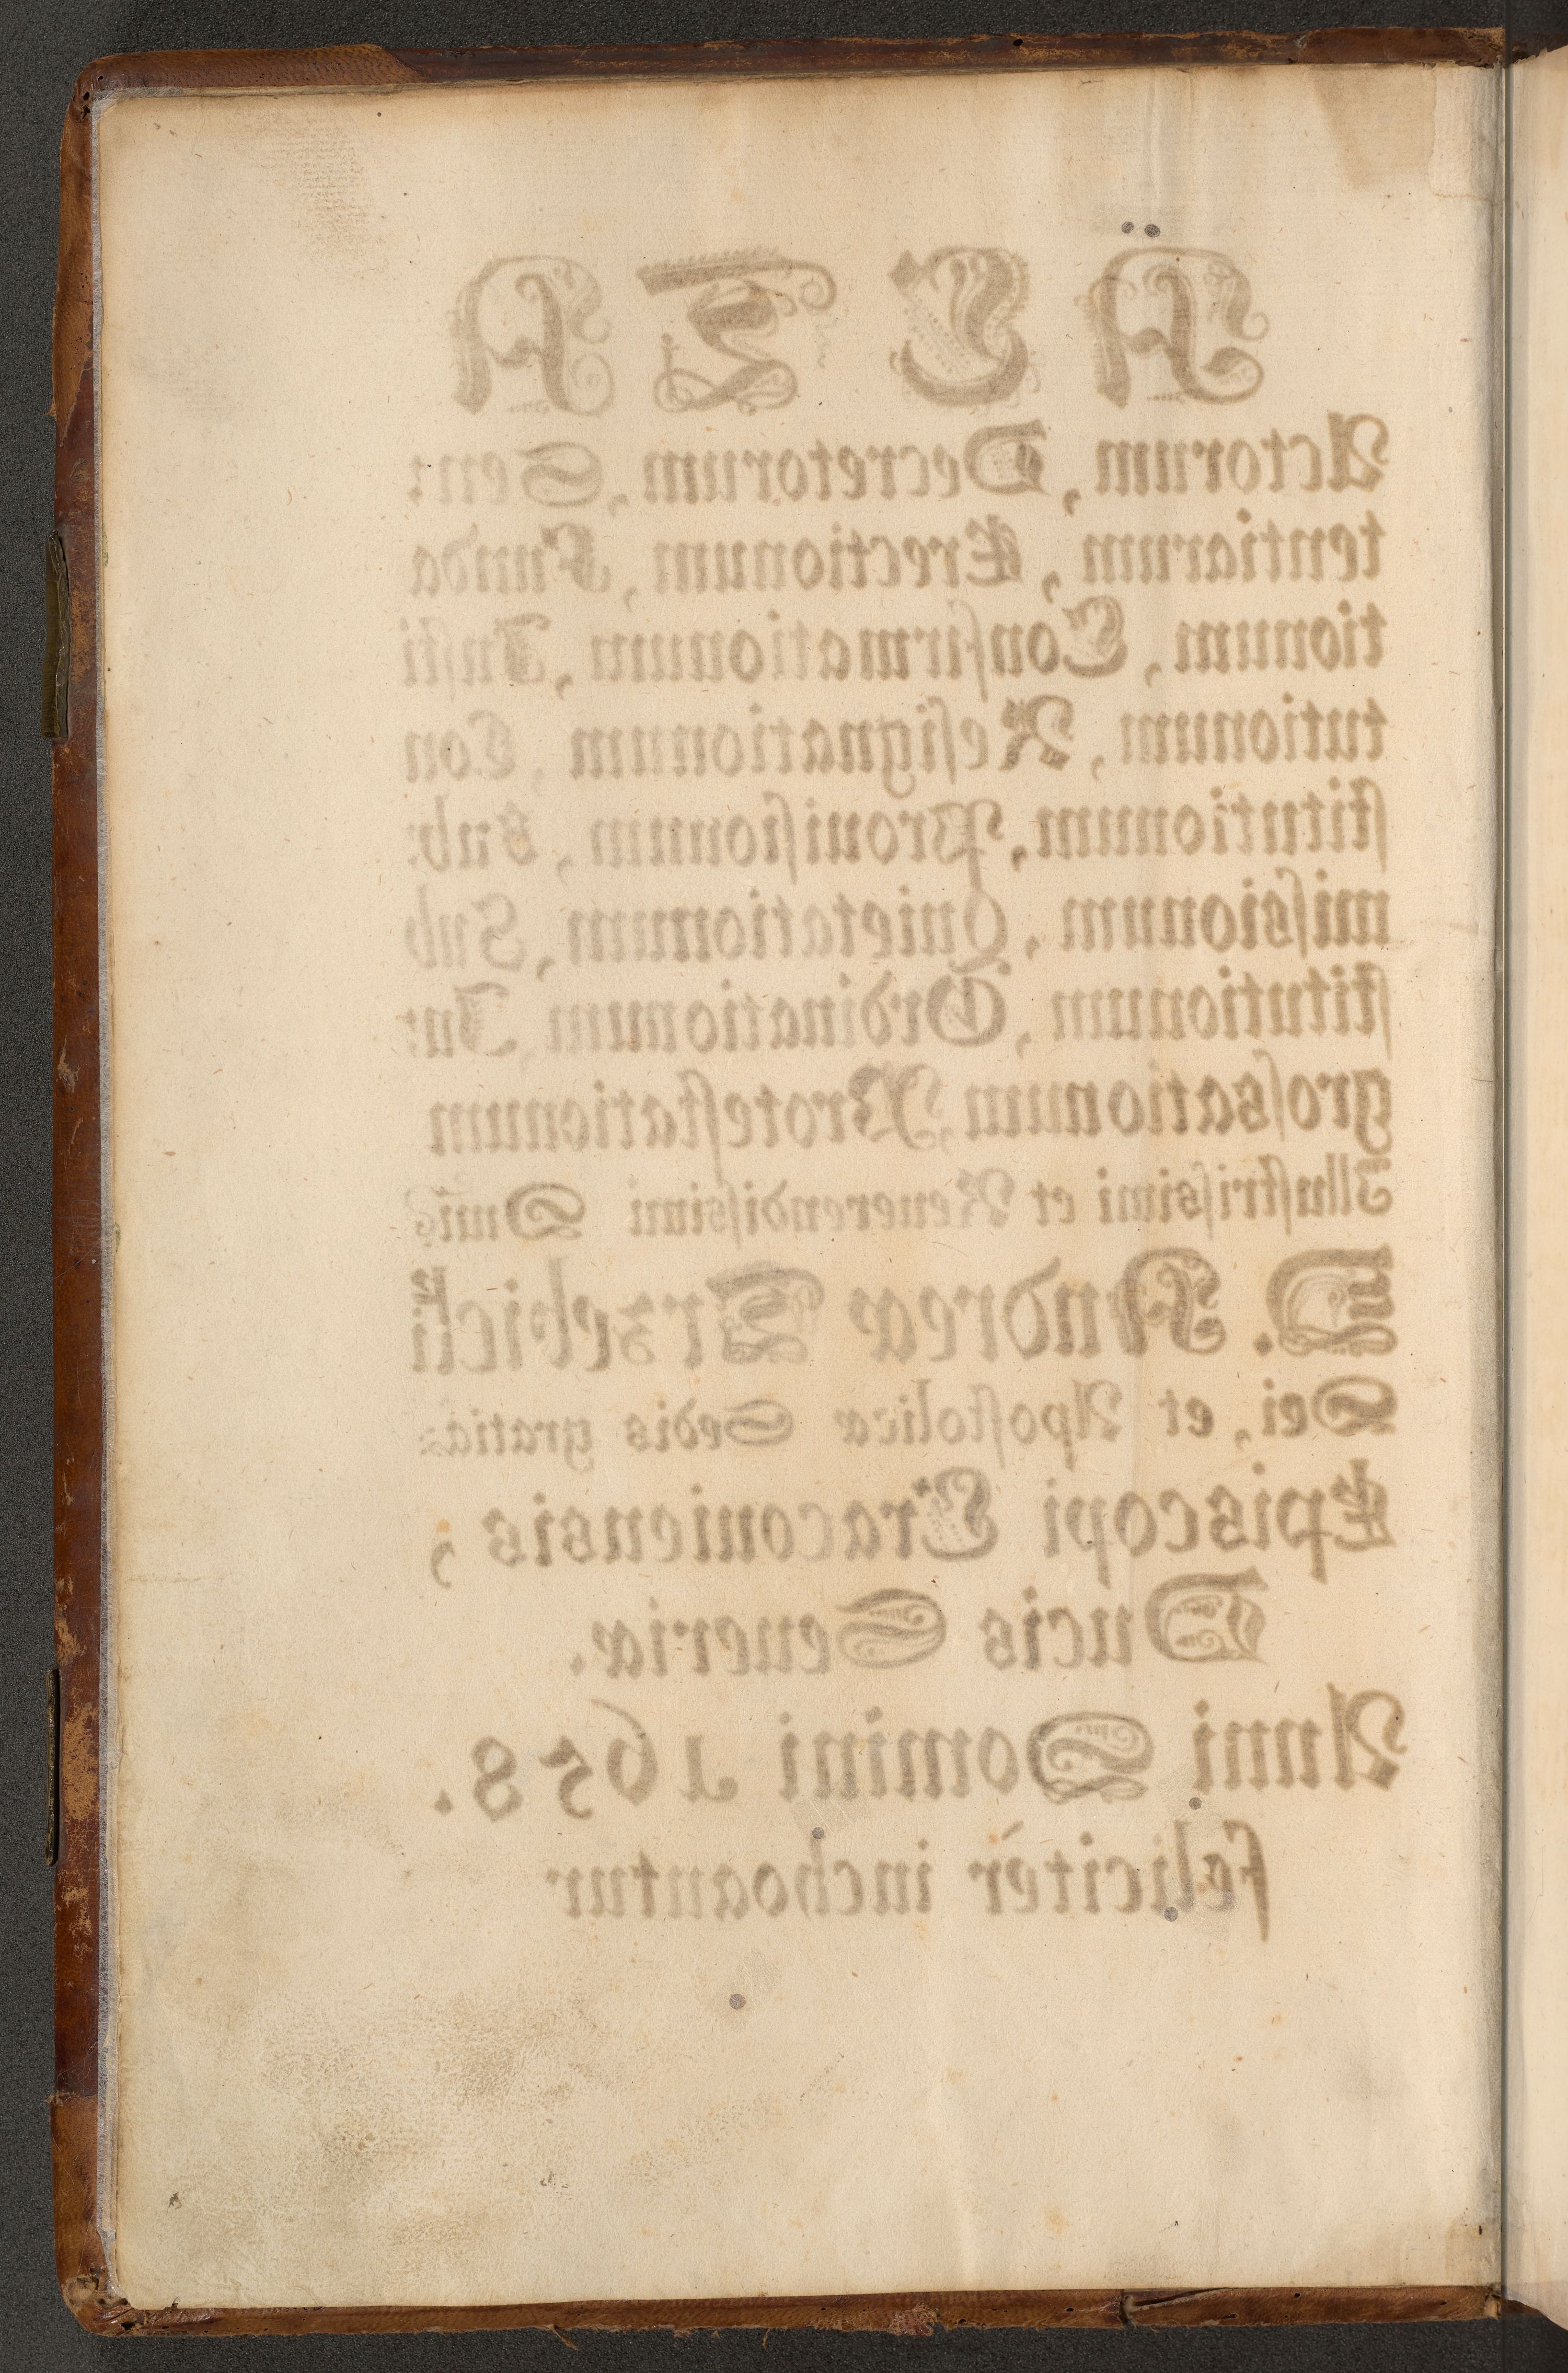 ACTA
Actorum, Decretorum, Sen:
tentiarum, Erectionum, Funda
tionum, Confirmationum, Insti
tutionum, Resignationum, Con
stitutionum, Prouisionum, Sub:
missionum, Quietationum, Sub
stitutionum, Ordinationum, In:
grossationum, Protestationum
Illustrissimi et Reuerendissimi Dnni
D. Andreæ Trzebicki
Dei, et Apostolicæ Sedis gratia
Episcopi Cracouiensis,
Ducis Seueriæ.
Anni Domini 1658.
felicitèr inchoantur